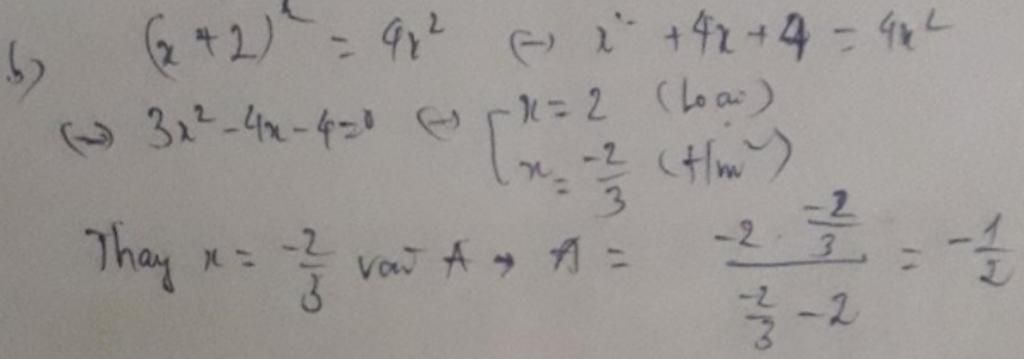 b) (x + 2)² = 4x² (→) x² + 4x + 4 = 4x²
(→) 3x² - 4x - 4 = 0 (→) [ x = 2 (loại)
x = -2/3 (t/m)
Thay x = -2/3 vào A → A = (-2 . -2/3) / (-2/3 - 2) = -1/2